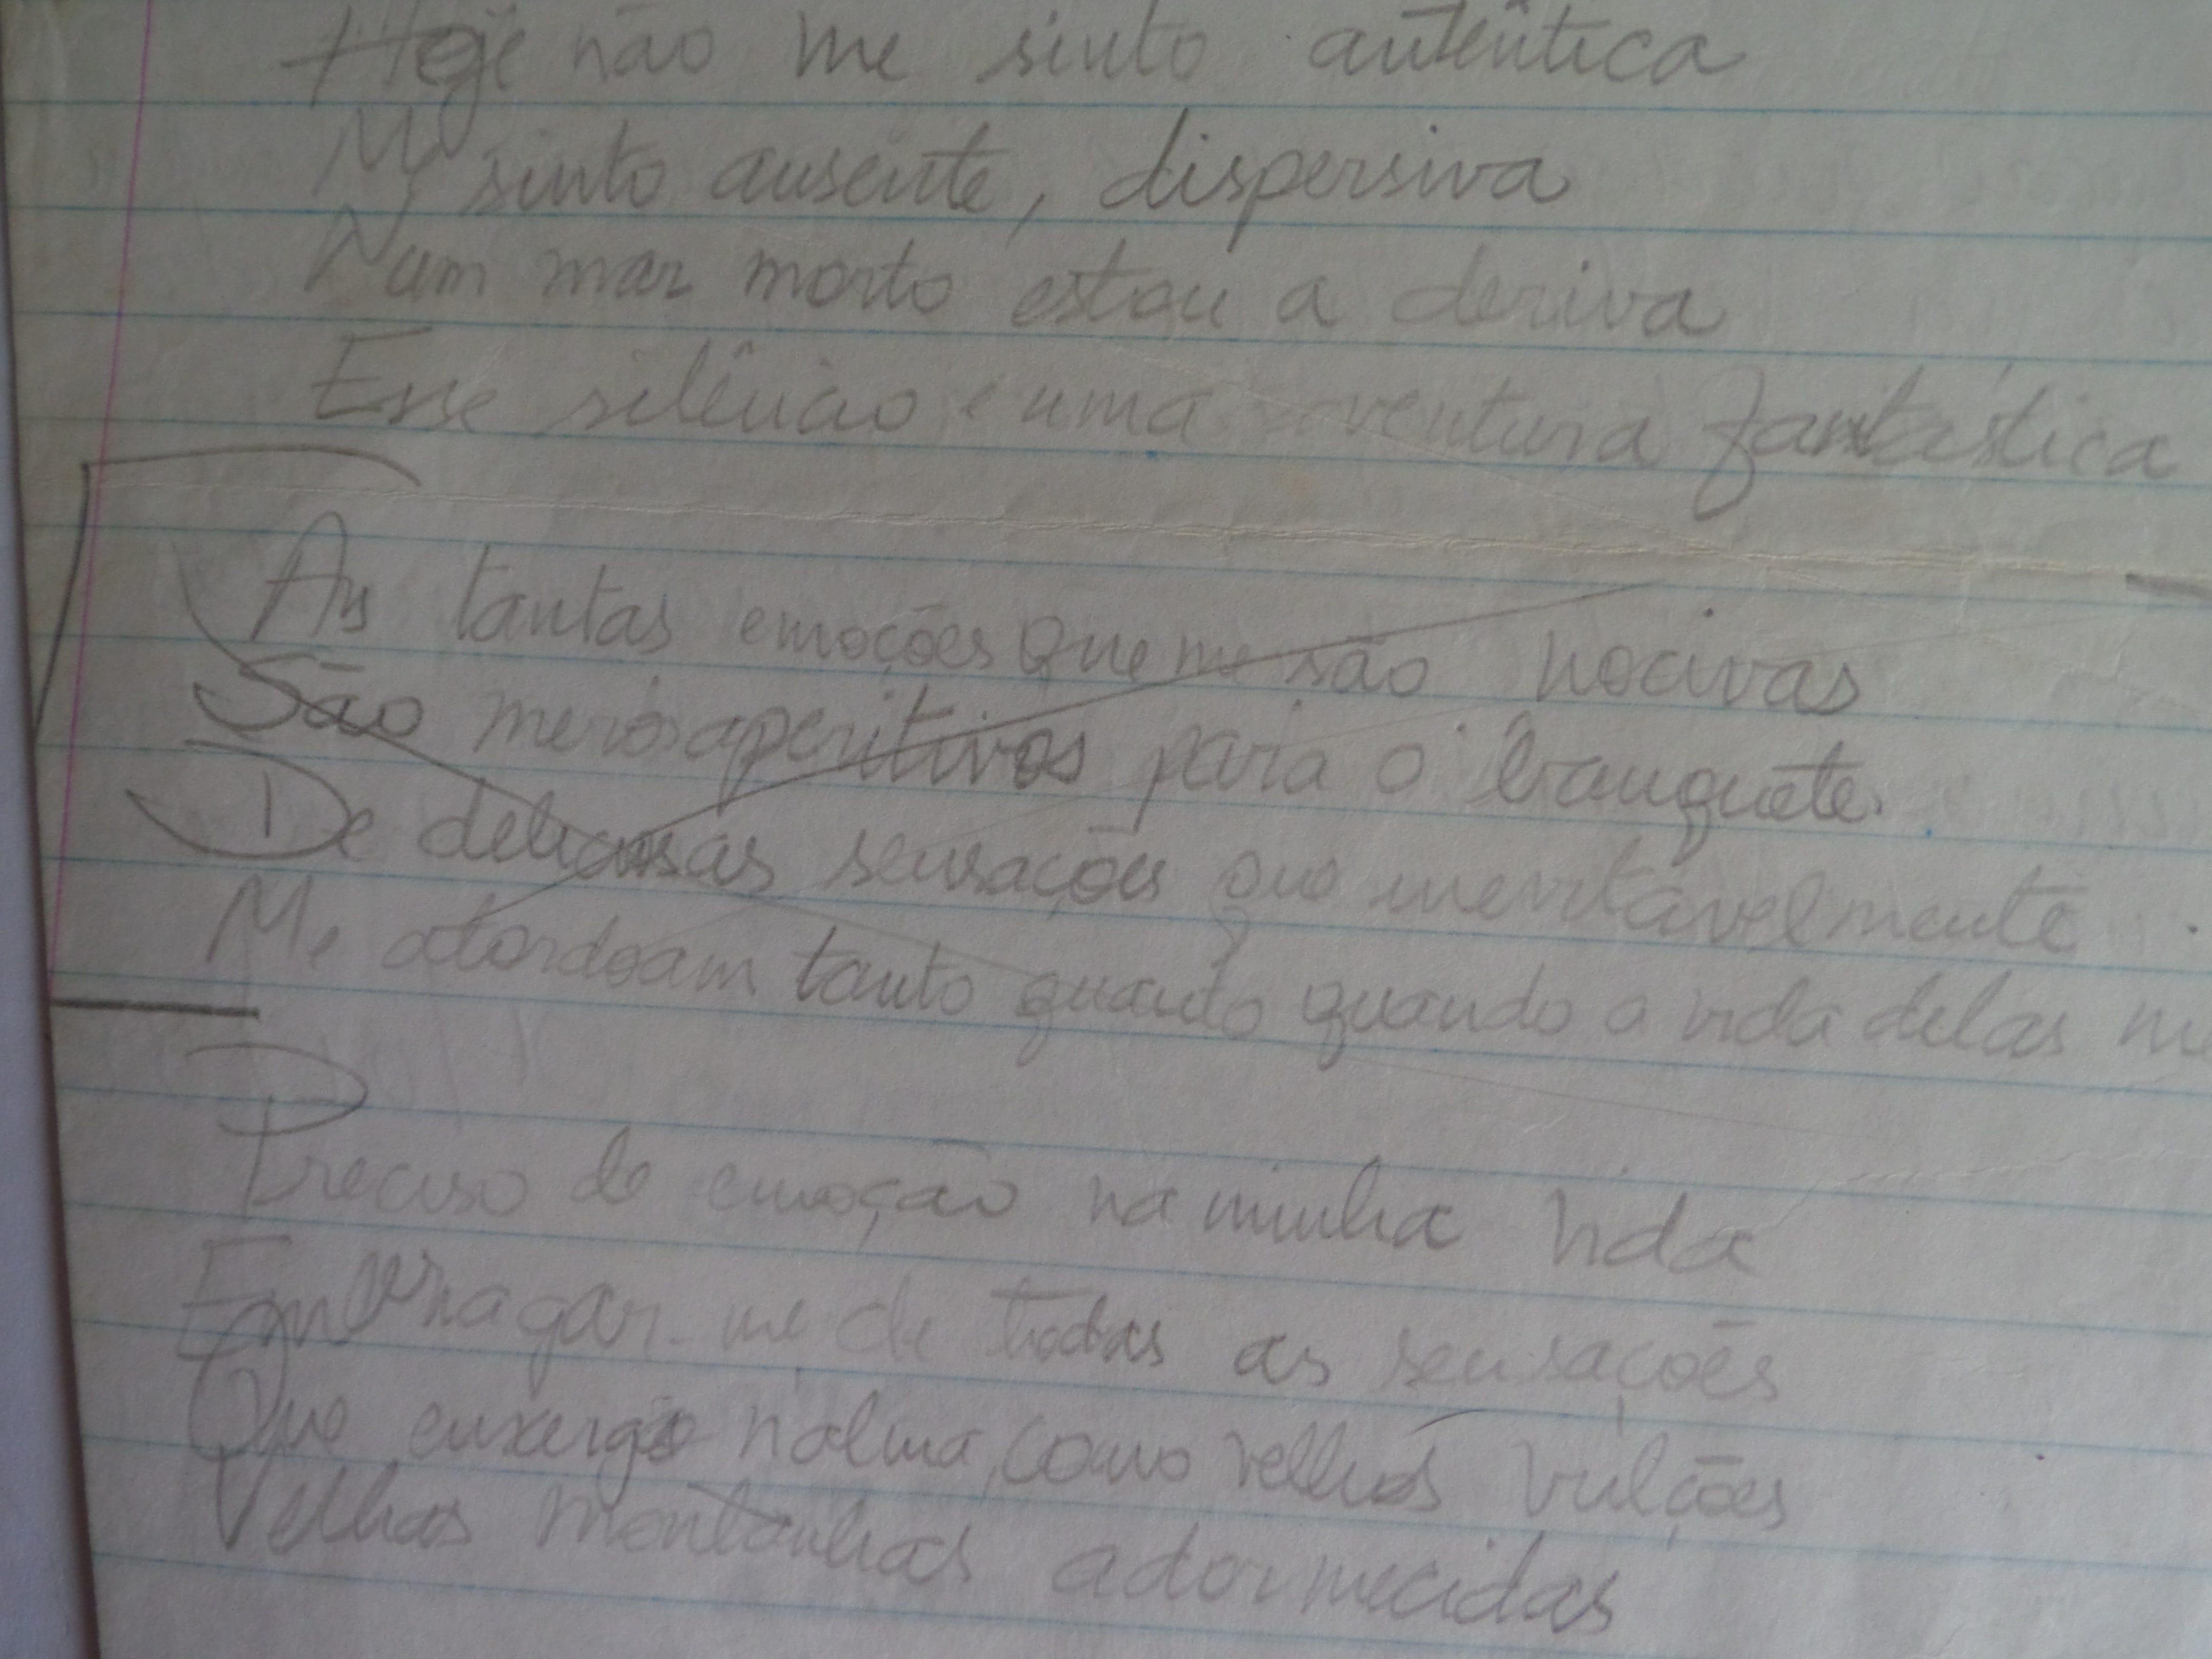 Hoje não me sinto autêntica
Me sinto ausente, dispersiva
Num mar morto estou a deriva
Esse silêncio é uma aventura fantástica
As tantas emoções que me são nocivas
São meros aperitivos para o banquete
De deliciosas sensações que inevitavelmente
Me atordoam tanto quanto quando a vida delas
Preciso de emoção na minha vida
Embriagar-me de todas as sensações
Que enxergo nalma, como velhos vulcões
Velhas montanhas adormecidas